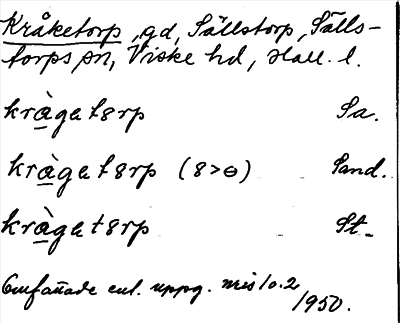 Kråketorp, gd, Sällstorp, Sälls-
torps sn, Viske hd, Hall. l.
kràgatɵrp Sa.
kràgatɵrp (8>ɵ) Sand.
kràgatɵrp St.
Omfånade enl. uppg. nris 1 o. 2
1950.